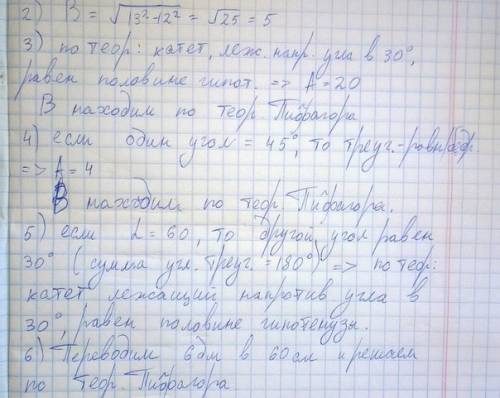 2) B = √13²-12² = √25 = 5
3) по теор: катет, леж. напр. угла в 30°,
равен половине гипот. => A = 20
В находим по теор. Пифагора
4) если один угол = 45°, то треуг.-равнбедр.
=> A = 4
В находим по теор. Пифагора.
5) если L = 60, то другой угол равен
30° (сумма угл. треуг. = 180°) => по теор:
катет лежащий напротив угла в
30°, равен половине гипотенузы.
6) Переводим 6дм в 60см и решаем
по теор. Пифагора.